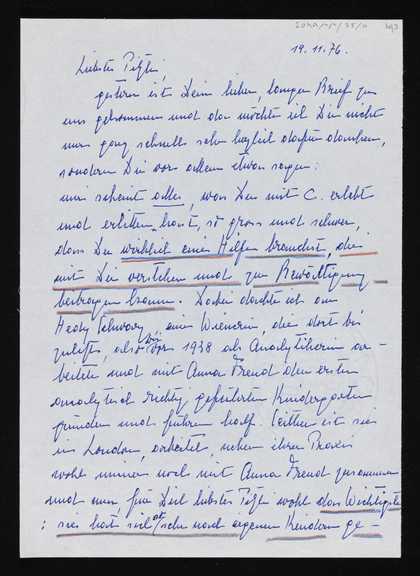 19.11.76.
Liebster Petzli,
gestern ist Dein lieber, langer Brief zu
uns gekommen und da möchte ich Dir nicht
nur ganz schnell sehr herzlich dafür danken,
sondern Dir vor allem etwas sagen:
mir scheint alles, was Du mit C. erlebt
und erlitten hast, so gross und schwer,
dass Du wirklich einen Helfer brauchst, der
mit Dir verstehen und zur Bewältigung
beitragen kann. Dabei dachte ich an
Hedy Schwarz, eine Wienerin, die dort bis
1938 als Analytikerin ar-
beitete und mit Anna Freud den ersten
analytisch richtig geführten Kindergarten
gründen und führen half. Seither ist sie
in London, arbeitet, neben ihrer Praxis
wohl immer noch mit Anna Freud zusammen
und nun, für Dich liebster Petzli wohl das Wichtigste
: sie hat sich sehr nach eigenen Kindern ge-